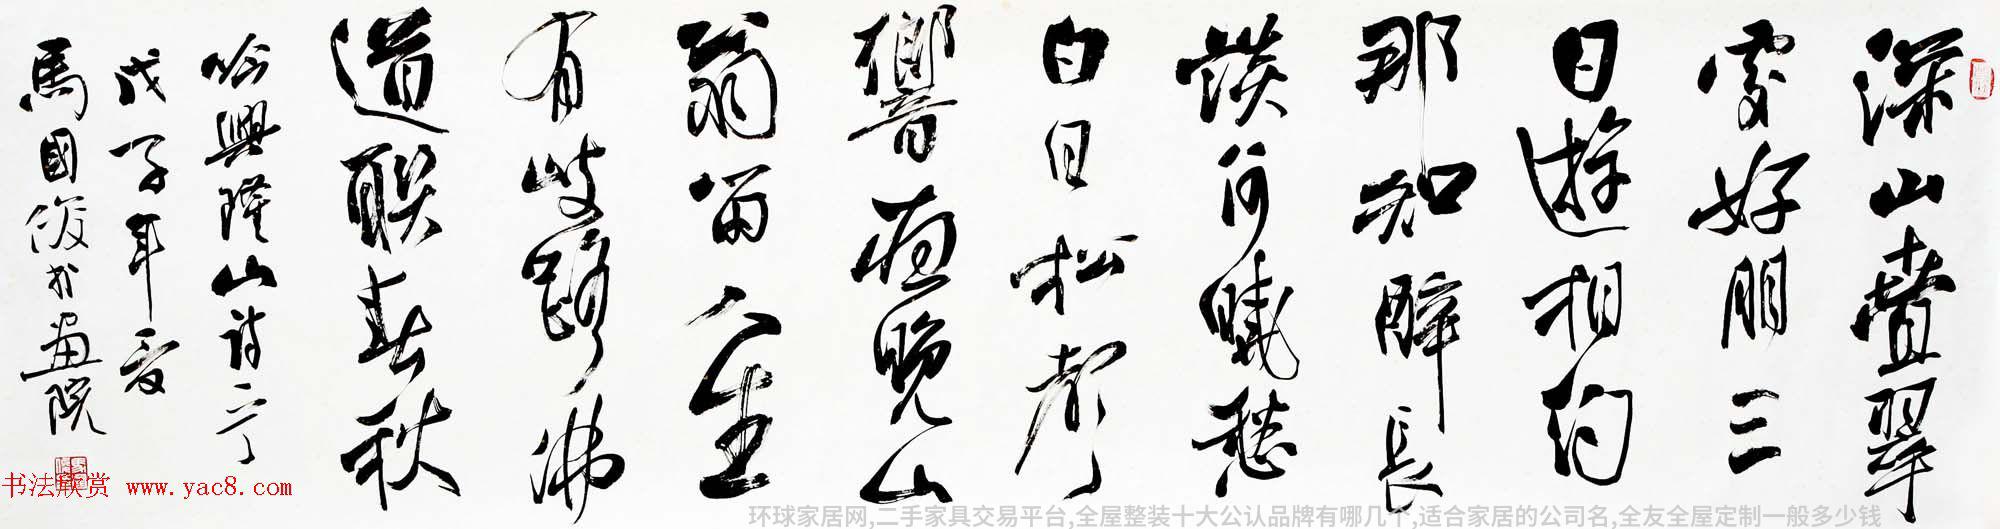 深山叠翠
处好朋三
日遊相约
那知醉长
谈何曦愁
白日松声
響夜晚山
翁留人生
有岐路佛
道联春秋
興隆山诗一首
戊子年夏
馬國俊於畫院
书法欣赏 www.yac8.com
环球家居网,二手家具交易平台,全屋整装十大公认品牌有哪几个,适合家居的公司名,全友全屋定制一般多少钱